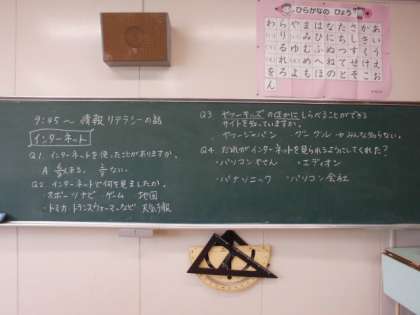 ひらがなの ひょう
わらやまはなたさかあ
りみひにちしきい
るゆむふぬつすくう
れめへねてせけえ
をろよもほのとそこお
9:45〜 情報リテラシーの話
インターネット
Q1. インターネットを使ったことがありますか。
A ある。 ない。
Q2. インターネットで何を見ましたか。
・スポーツナビ ・ゲーム 地図
・トミカ トランスフォーマーなど 天気予報
Q3. ヤフーキッズのほかにしらべることができる
サイトを知っていますか。
・ヤフージャパン グーグル ※みんな知らない。
Q4. だれがインターネットを見られるようにしてくれた?
・パソコンやさん ・エディオン
・パナソニック ・パソコン会社